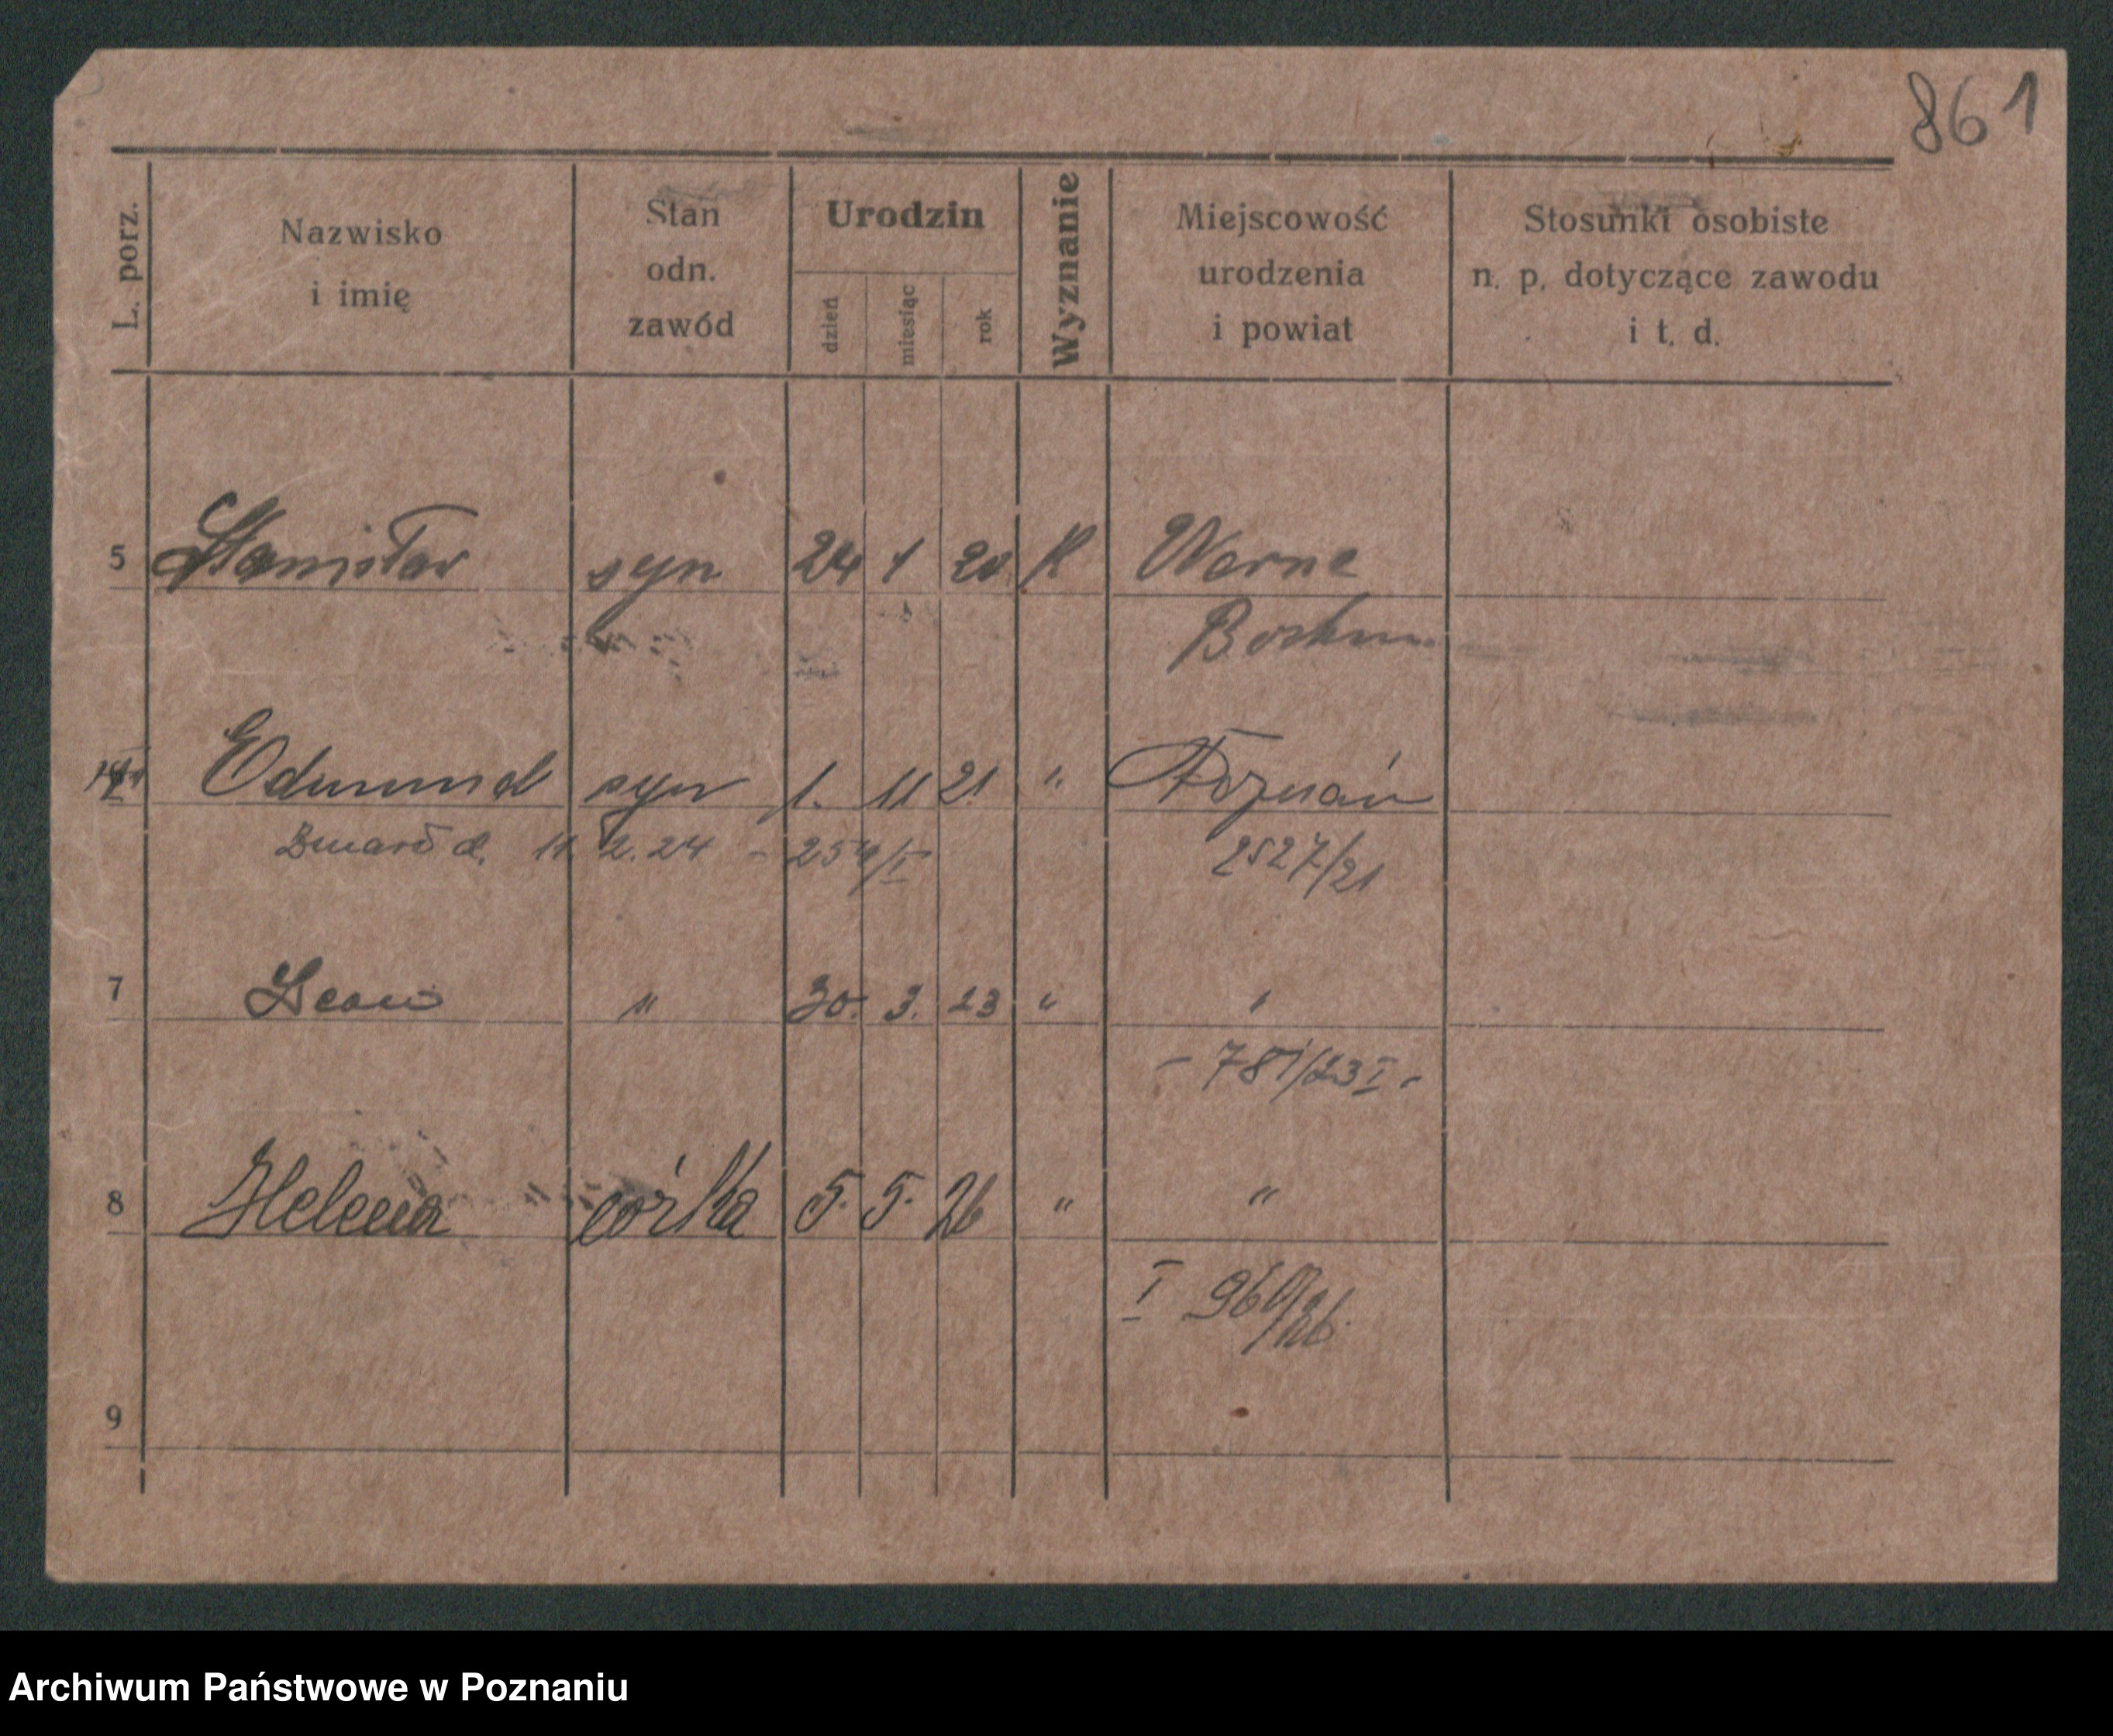 861
L. porz.
Nazwisko
i imię
Stan
odn.
zawód
Urodzin
dzień
miesiąc
rok
Wyznanie
Miejscowość
urodzenia
i powiat
Stosunki osobiste
n. p. dotyczące zawodu
i t. d.
5 Stanisław syn 24 1 20 K Werne
Bochum
Edmund syn 1. 11 21 " Poznań
Zmarł d. 11. 2. 24 - 254/I 2527/21
7 Leon " 30. 3. 23 " "
- 781/23 I -
8 Helena córka 5. 5. 26 " "
I 960/26.
9
Archiwum Państwowe w Poznaniu